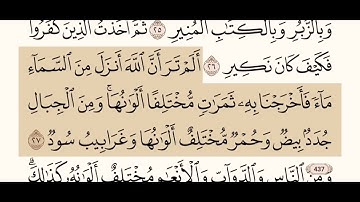 وَبِالزُّبُرِ وَبِالْكِتَٰبِ الْمُنِيرِ ٢٥ ثُمَّ أَخَذْتُ الَّذِينَ كَفَرُوا
فَكَيْفَ كَانَ نَكِيرِ ٢٦ أَلَمْ تَرَ أَنَّ اللَّهَ أَنزَلَ مِنَ السَّمَآءِ
مَآءً فَأَخْرَجْنَا بِهِۦ ثَمَرَٰتٍ مُّخْتَلِفًا أَلْوَٰنُهَا ۚ وَمِنَ الْجِبَالِ
جُدَدٌۢ بِيضٌ وَحُمْرٌ مُّخْتَلِفٌ أَلْوَٰنُهَا وَغَرَابِيبُ سُودٌ ٢٧
وَمِنَ النَّاسِ وَالدَّوَآبِّ وَالْأَنْعَٰمِ مُخْتَلِفٌ أَلْوَٰنُهُۥ كَذَٰلِكَ ۗ
437